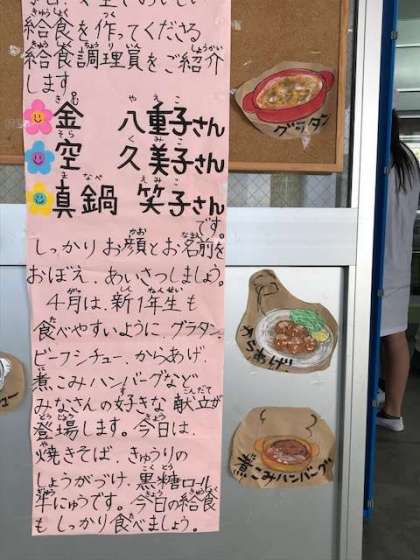 給食を作ってくださる
給食調理員をご紹介
します。
金 八重子さん
空 久美子さん
真鍋 笑子さん
です。
しっかりお顔とお名前を
おぼえ、あいさつしましょう。
4月は、新1年生も
食べやすいように、グラタン、
ビーフシチュー、からあげ、
煮こみハンバーグなど
みなさんの好きな献立が
登場します。今日は、
焼きそば、きゅうりの
しょうがづけ、黒糖ロール、
牛にゅうです。今日の給食
もしっかり食べましょう。
グラタン
からあげ
煮こみハンバーグ